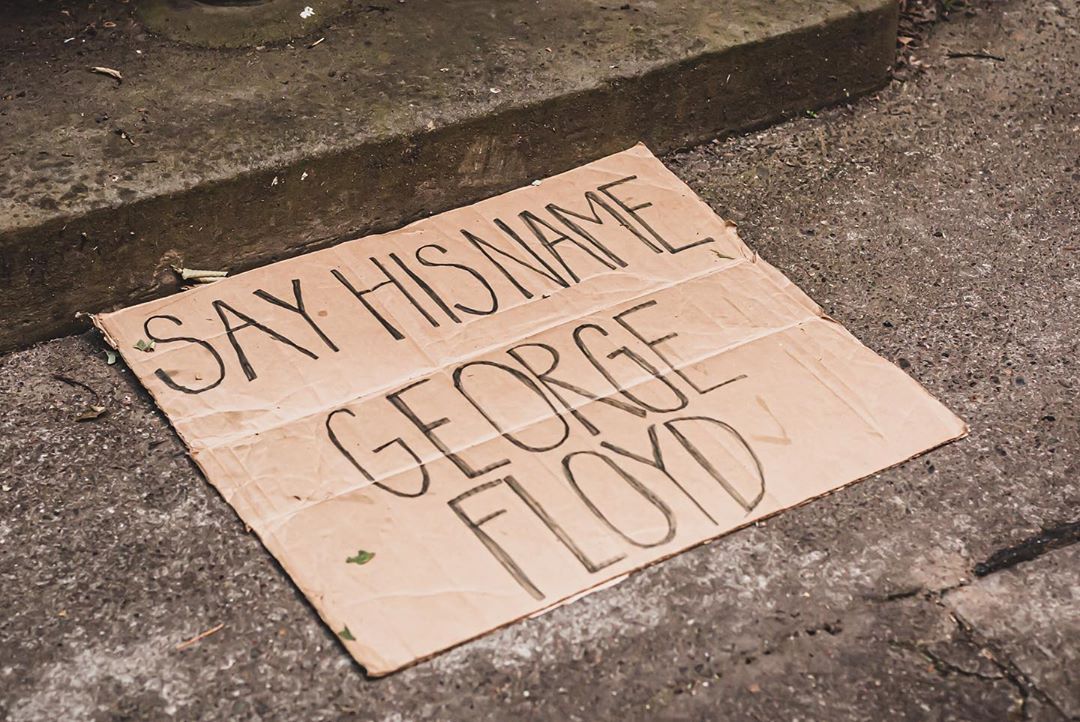 SAY HIS NAME
GEORGE
FLOYD